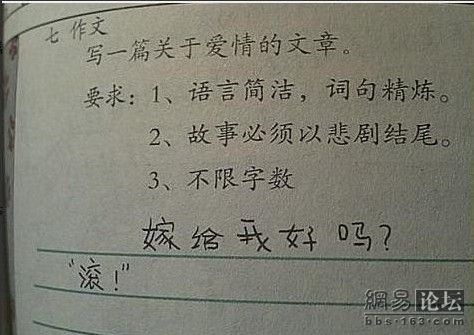 七 作文
写一篇关于爱情的文章。
要求：1、语言简洁，词句精炼。
2、故事必须以悲剧结尾。
3、不限字数
嫁给我好吗？
“滚！”
網易 论坛
bbs.163.com